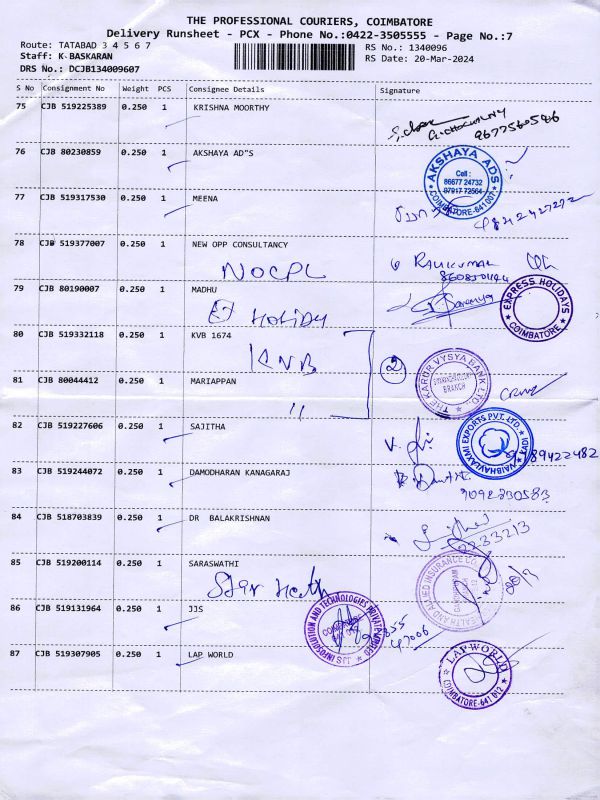 THE PROFESSIONAL COURIERS, COIMBATORE
Delivery Runsheet - PCX - Phone No.:0422-3505555 - Page No.:7
Route: TATABAD 3 4 5 6 7
Staff: K BASKARAN
DRS No.: DCJB134009607
RS No.: 1340096
RS Date: 20-Mar-2024
S No Consignment No Weight PCS Consignee Details Signature
75 CJB 519225389 0.250 1 KRISHNA MOORTHY
9677560586
76 CJB 80230859 0.250 1 AKSHAYA AD"S
AKSHAYA ADS
Cell :
86677 24732
87917 72564
COIMBATORE-641 007
77 CJB 519317530 0.250 1 MEENA
9842427272
78 CJB 519377007 0.250 1 NEW OPP CONSULTANCY
NOCPL
RAJKUMAR
79 CJB 80190007 0.250 1 MADHU
EX HOLIDY
Saranya
EXPRESS HOLIDAYS
COIMBATORE
80 CJB 519332118 0.250 1 KVB 1674
KVB
2
THE KARUR VYSYA BANK LTD.
BRANCH
81 CJB 80044412 0.250 1 MARIAPPAN
"
82 CJB 519227606 0.250 1 SAJITHA
VAIBHAVLAXMI EXPORTS PVT. LTD
KADI
9789422482
83 CJB 519244072 0.250 1 DAMODHARAN KANAGARAJ
9092330583
84 CJB 518703839 0.250 1 DR BALAKRISHNAN
2233213
85 CJB 519200114 0.250 1 SARASWATHI
Star Health
HEALTH AND ALLIED INSURANCE CO.
86 CJB 519131964 0.250 1 JJS
JJS INFOSOLUTION AND TECHNOLOGIES PRIVATE LIMITED
47006
87 CJB 519307905 0.250 1 LAP WORLD
LAP WORLD
COIMBATORE-641 012